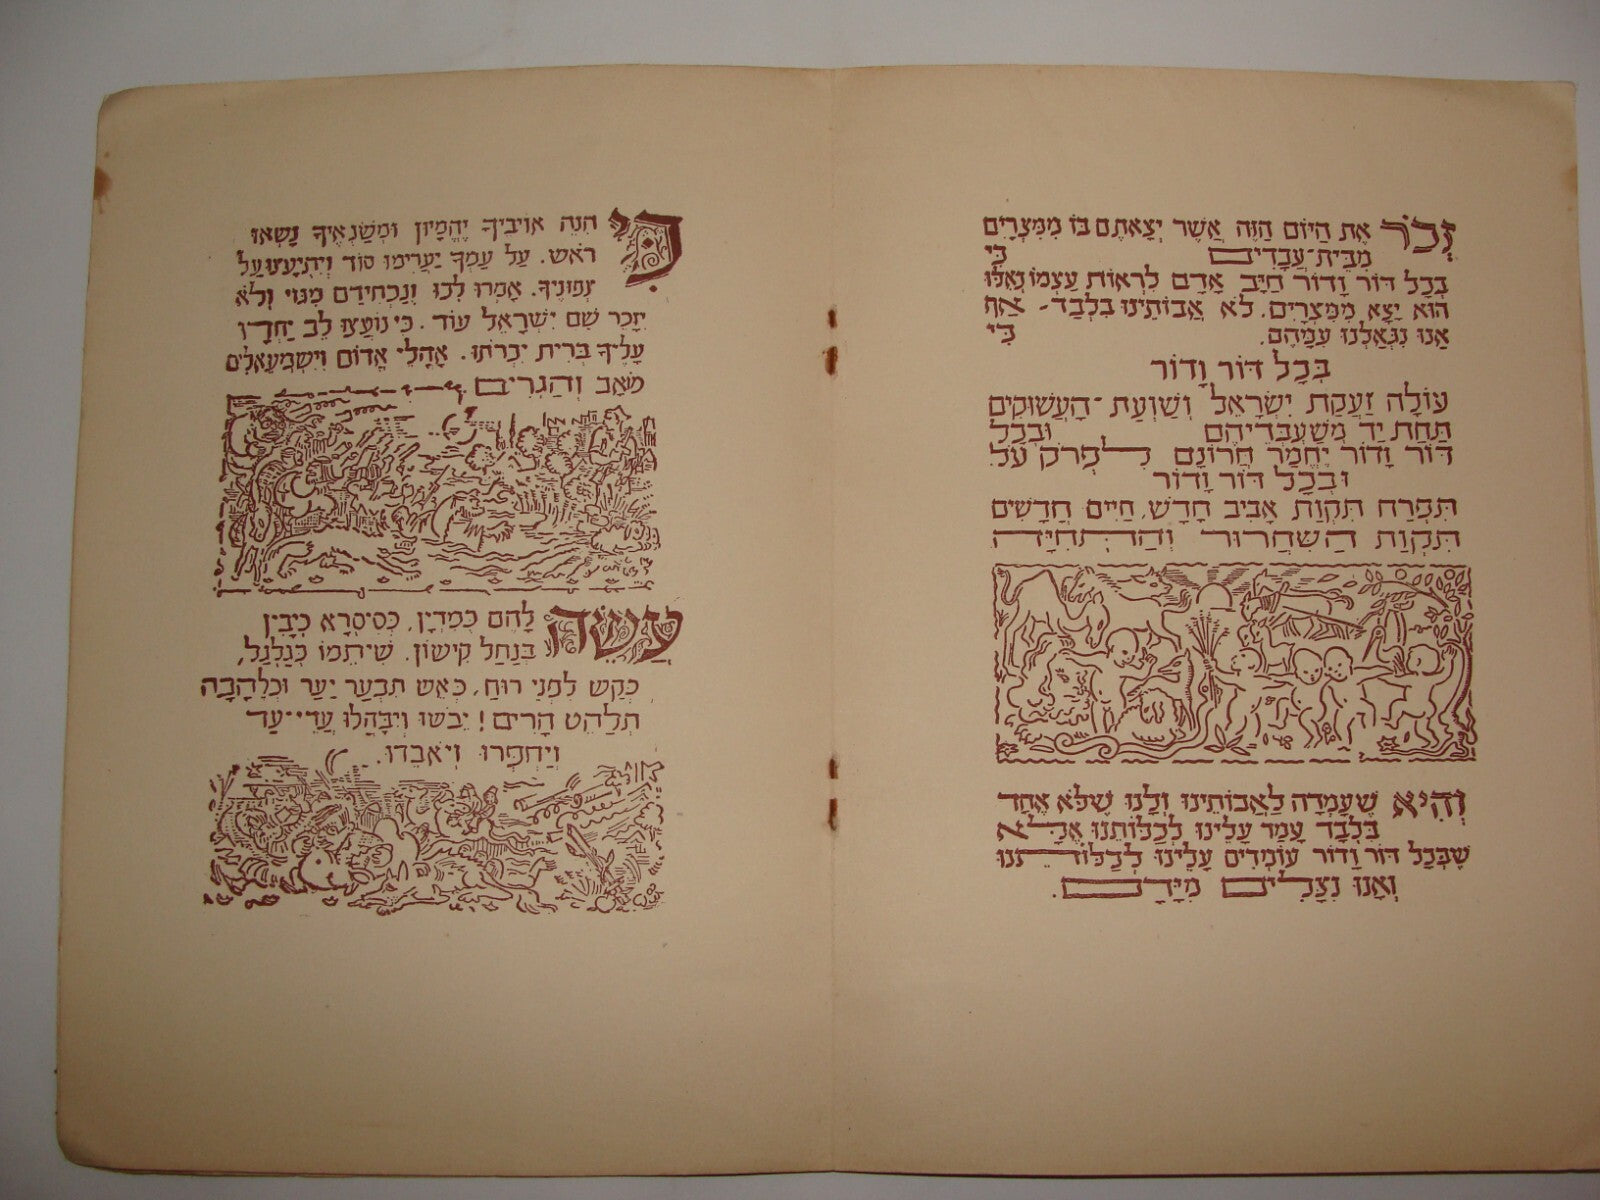 זָכֹר אֶת הַיּוֹם הַזֶּה אֲשֶׁר יְצָאתֶם בּוֹ מִמִּצְרַיִם
מִבֵּית־עֲבָדִים כִּי
בְּכָל דּוֹר וָדוֹר חַיָּב אָדָם לִרְאוֹת עַצְמוֹ כְּאִלּוּ
הוּא יָצָא מִמִּצְרַיִם. לֹא אֲבוֹתֵינוּ בִּלְבַד־ אַף
אָנוּ נִגְאַלְנוּ עִמָּהֶם. כִּי
בְּכָל דּוֹר וָדוֹר
עוֹלָה זַעֲקַת יִשְׂרָאֵל וְשַׁוְעַת־הָעֲשׁוּקִים
תַּחַת יַד מְשַׁעְבְּדֵיהֶם וּבְכָל
דּוֹר וָדוֹר יֶחֱמַר חֲרוֹנָם לִפְרֹק עֹל
וּבְכָל דּוֹר וָדוֹר
תִּפְרַח תִּקְוַת אָבִיב חָדָשׁ, חַיִּים חֲדָשִׁים
תִּקְוַת הַשִּׁחְרוּר וְהַתְּחִיָּה
וְהִיא שֶׁעָמְדָה לַאֲבוֹתֵינוּ וְלָנוּ שֶׁלֹּא אֶחָד
בִּלְבָד עָמַד עָלֵינוּ לְכַלּוֹתֵנוּ אֶלָּא
שֶׁבְּכָל דּוֹר וָדוֹר עוֹמְדִים עָלֵינוּ לְכַלּוֹתֵנוּ
וְאָנוּ נִצָּלִים מִיָּדָם.
כִּי הִנֵּה אוֹיְבֶיךָ יֶהֱמָיוּן וּמְשַׂנְאֶיךָ נָשְׂאוּ
רֹאשׁ. עַל עַמְּךָ יַעֲרִימוּ סוֹד וְיִתְיָעֲצוּ עַל
צְפוּנֶיךָ. אָמְרוּ לְכוּ וְנַכְחִידֵם מִגּוֹי וְלֹא
יִזָּכֵר שֵׁם יִשְׂרָאֵל עוֹד. כִּי נוֹעֲצוּ לֵב יַחְדָּו
עָלֶיךָ בְּרִית יִכְרֹתוּ. אָהֳלֵי אֱדוֹם וְיִשְׁמְעֵאלִים
מוֹאָב וְהַגְרִים
עֲשֵׂה לָהֶם כְּמִדְיָן, כְּסִיסְרָא כְיָבִין
בְּנַחַל קִישׁוֹן. שִׁיתֵמוֹ כַּגַּלְגַּל,
כְּקַשׁ לִפְנֵי רוּחַ, כְּאֵשׁ תִּבְעַר יַעַר וּכְלֶהָבָה
תְּלַהֵט הָרִים! יֵבֹשׁוּ וְיִבָּהֲלוּ עֲדֵי־עַד
וְיַחְפְּרוּ וְיֹאבֵדוּ.